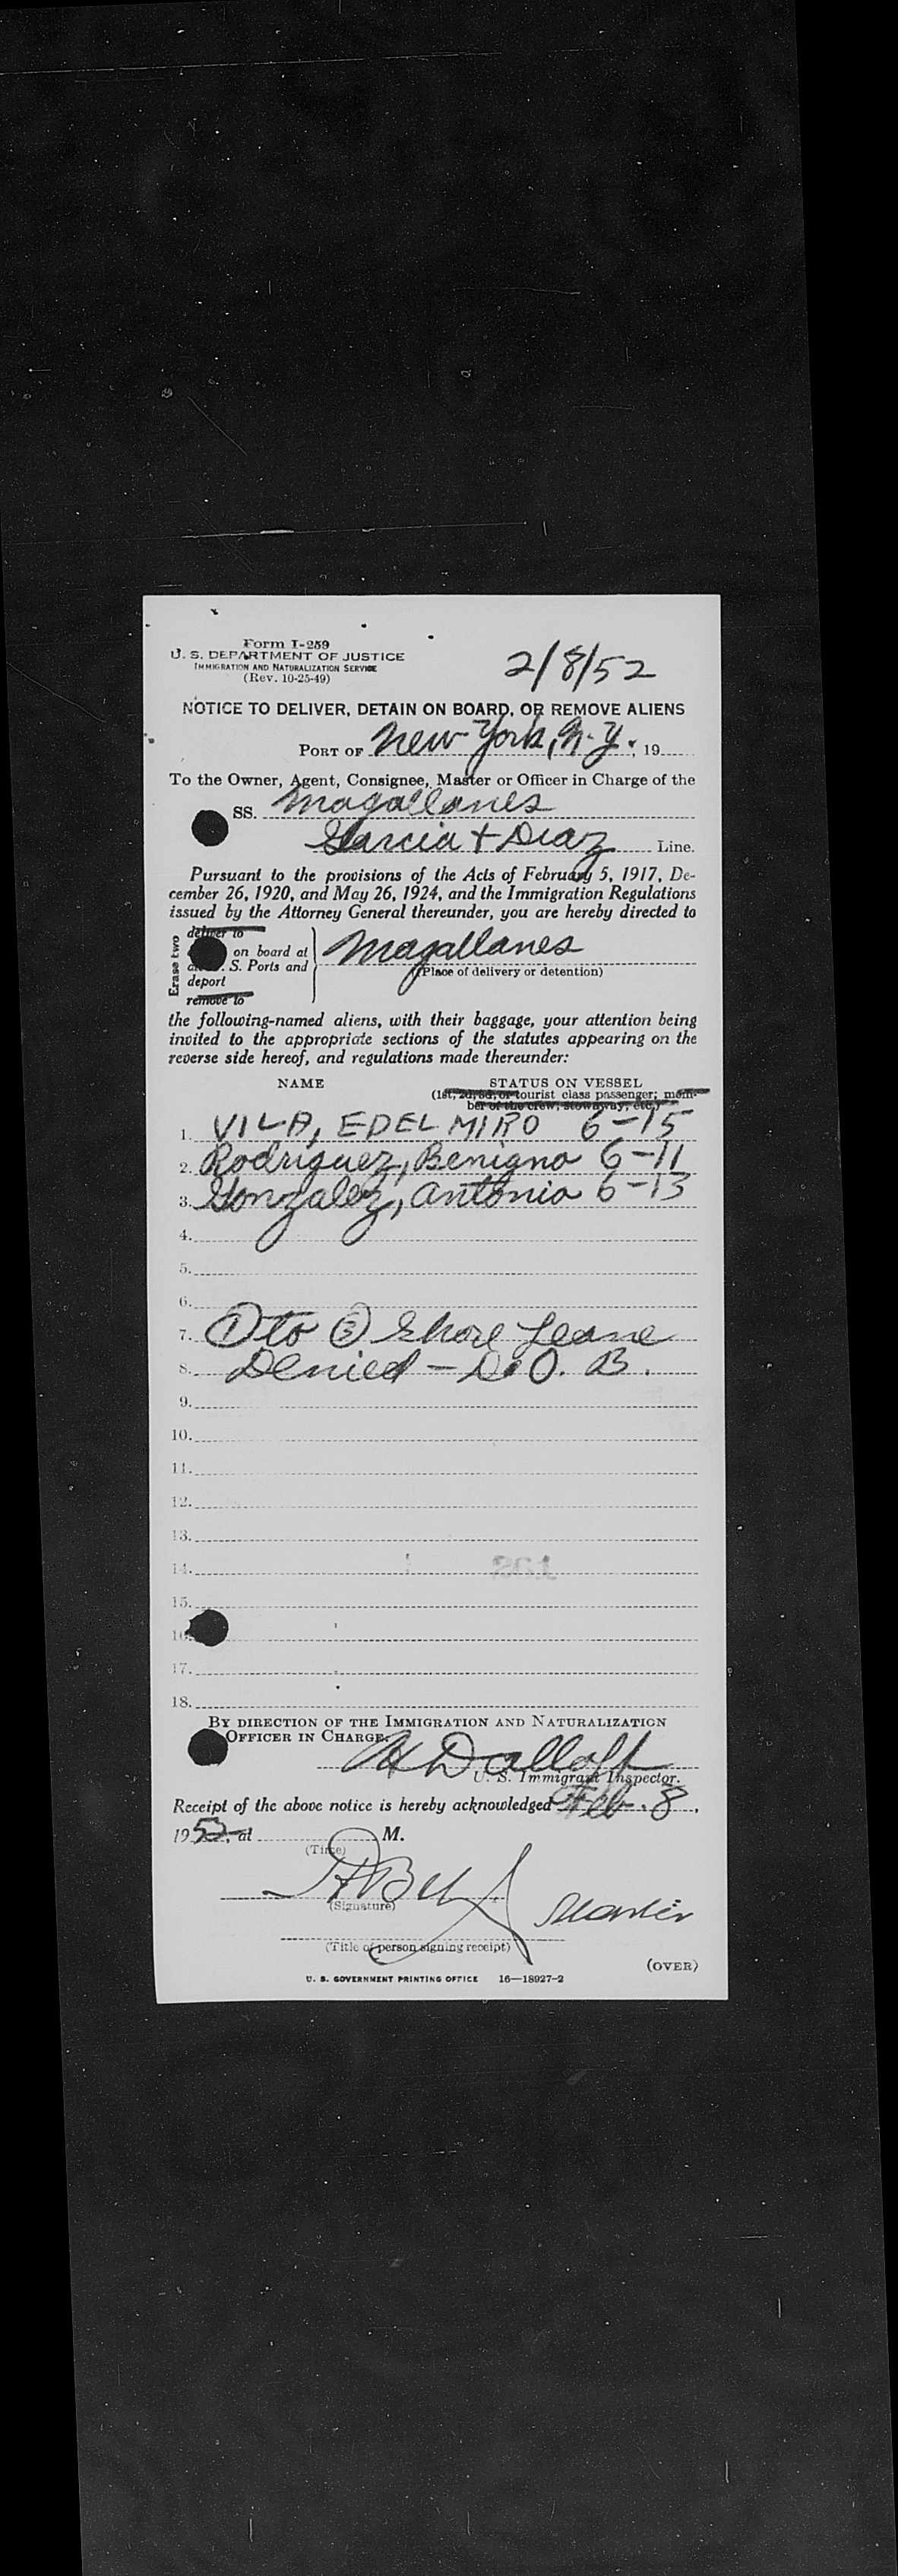 Form I-259
U. S. DEPARTMENT OF JUSTICE
IMMIGRATION AND NATURALIZATION SERVICE
(Rev. 10-25-49)
2/8/52
NOTICE TO DELIVER, DETAIN ON BOARD, OR REMOVE ALIENS
PORT OF New York, N.Y., 19
To the Owner, Agent, Consignee, Master or Officer in Charge of the
SS. Magallanes
Garcia + Diaz Line.
Pursuant to the provisions of the Acts of February 5, 1917, De-
cember 26, 1920, and May 26, 1924, and the Immigration Regulations
issued by the Attorney General thereunder, you are hereby directed to
Erase two
deliver to
on board at
S. Ports and
deport
remove to
Magallanes
(Place of delivery or detention)
the following-named aliens, with their baggage, your attention being
invited to the appropriate sections of the statutes appearing on the
reverse side hereof, and regulations made thereunder:
NAME STATUS ON VESSEL
(1st, 2d, 3d, or tourist class passenger; mem-
ber of the crew, stowaway, etc.)
1. VILA, EDELMIRO 6-15
2. Rodriguez, Benigno 6-11
3. Gonzalez, Antonio 6-13
4.
5.
6.
7. (1) to (3) Shore Leave
8. Denied - D.O.B.
9.
10.
11.
12.
13.
14.
15.
16.
17.
18.
BY DIRECTION OF THE IMMIGRATION AND NATURALIZATION
OFFICER IN CHARGE:
U. S. Immigrant Inspector.
Receipt of the above notice is hereby acknowledged Feb. 8,
1952, at M.
(Time)
(Signature)
(Title of person signing receipt)
(OVER)
U. S. GOVERNMENT PRINTING OFFICE 16—18927-2